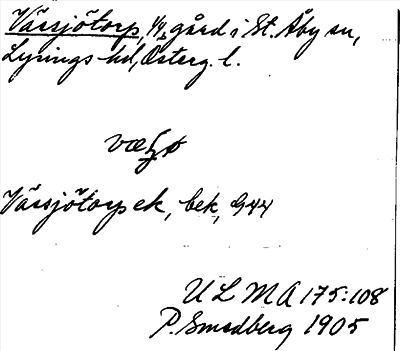 Värsjötorp, 1/4, gård i St. Åby sn,
Lysings hd, Österg. l.
Värsjötorp ek, bek, G44
U L M A 175:108
P. Smedberg 1905